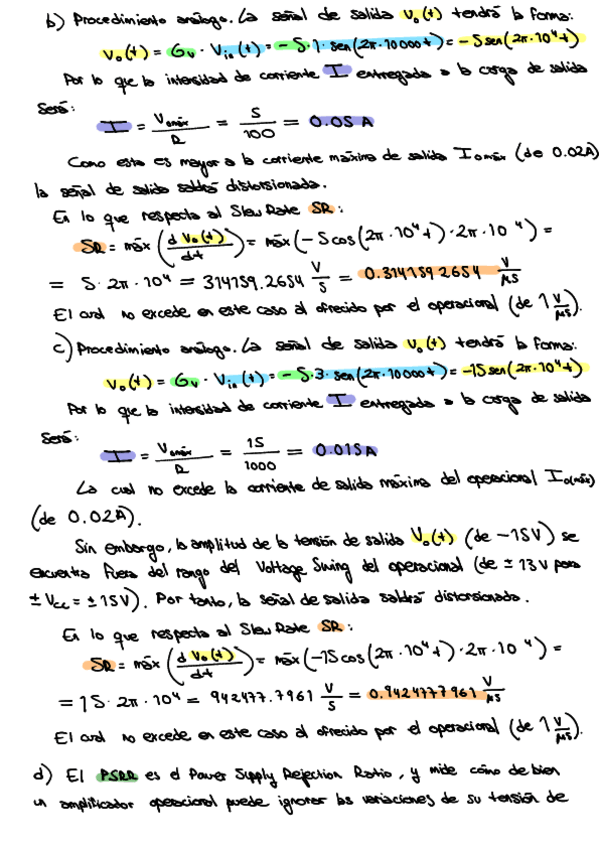 b) Procedimiento análogo. La señal de salida Vo(t) tendrá la forma:
Vo(t) = Gv · Vin(t) = -5·1·sen(2π·10000t) = -5sen(2π·10⁴t)
Por lo que la intensidad de corriente I entregada a la carga de salida
será:
I = Vomáx/R = 5/100 = 0.05 A
Como esta es mayor a la corriente máxima de salida Iomáx (de 0.02A)
la señal de salida saldrá distorsionada.
En lo que respecta al Slew Rate SR:
SR = máx(d Vo(t)/dt) = máx(-5cos(2π·10⁴t)·2π·10⁴) =
= 5·2π·10⁴ = 314159.2654 V/s = 0.3141592654 V/μs
El cual no excede en este caso al ofrecido por el operacional (de 1 V/μs).
c) Procedimiento análogo. La señal de salida Vo(t) tendrá la forma:
Vo(t) = Gv · Vin(t) = -5·3·sen(2π·10000t) = -15sen(2π·10⁴t)
Por lo que la intensidad de corriente I entregada a la carga de salida
será:
I = Vomáx/R = 15/1000 = 0.015A
La cual no excede la corriente de salida máxima del operacional Io(máx)
(de 0.02A).
Sin embargo, la amplitud de la tensión de salida Vo(t) (de -15V) se
encuentra fuera del rango del Voltage Swing del operacional (de ±13V para
±Vcc = ±15V). Por tanto, la señal de salida saldrá distorsionada.
En lo que respecta al Slew Rate SR:
SR = máx(d Vo(t)/dt) = máx(-15cos(2π·10⁴t)·2π·10⁴) =
= 15·2π·10⁴ = 942477.7961 V/s = 0.9424777961 V/μs
El cual no excede en este caso al ofrecido por el operacional (de 1 V/μs).
d) El PSRR es el Power Supply Rejection Ratio, y mide cómo de bien
un amplificador operacional puede ignorar las variaciones de su tensión de